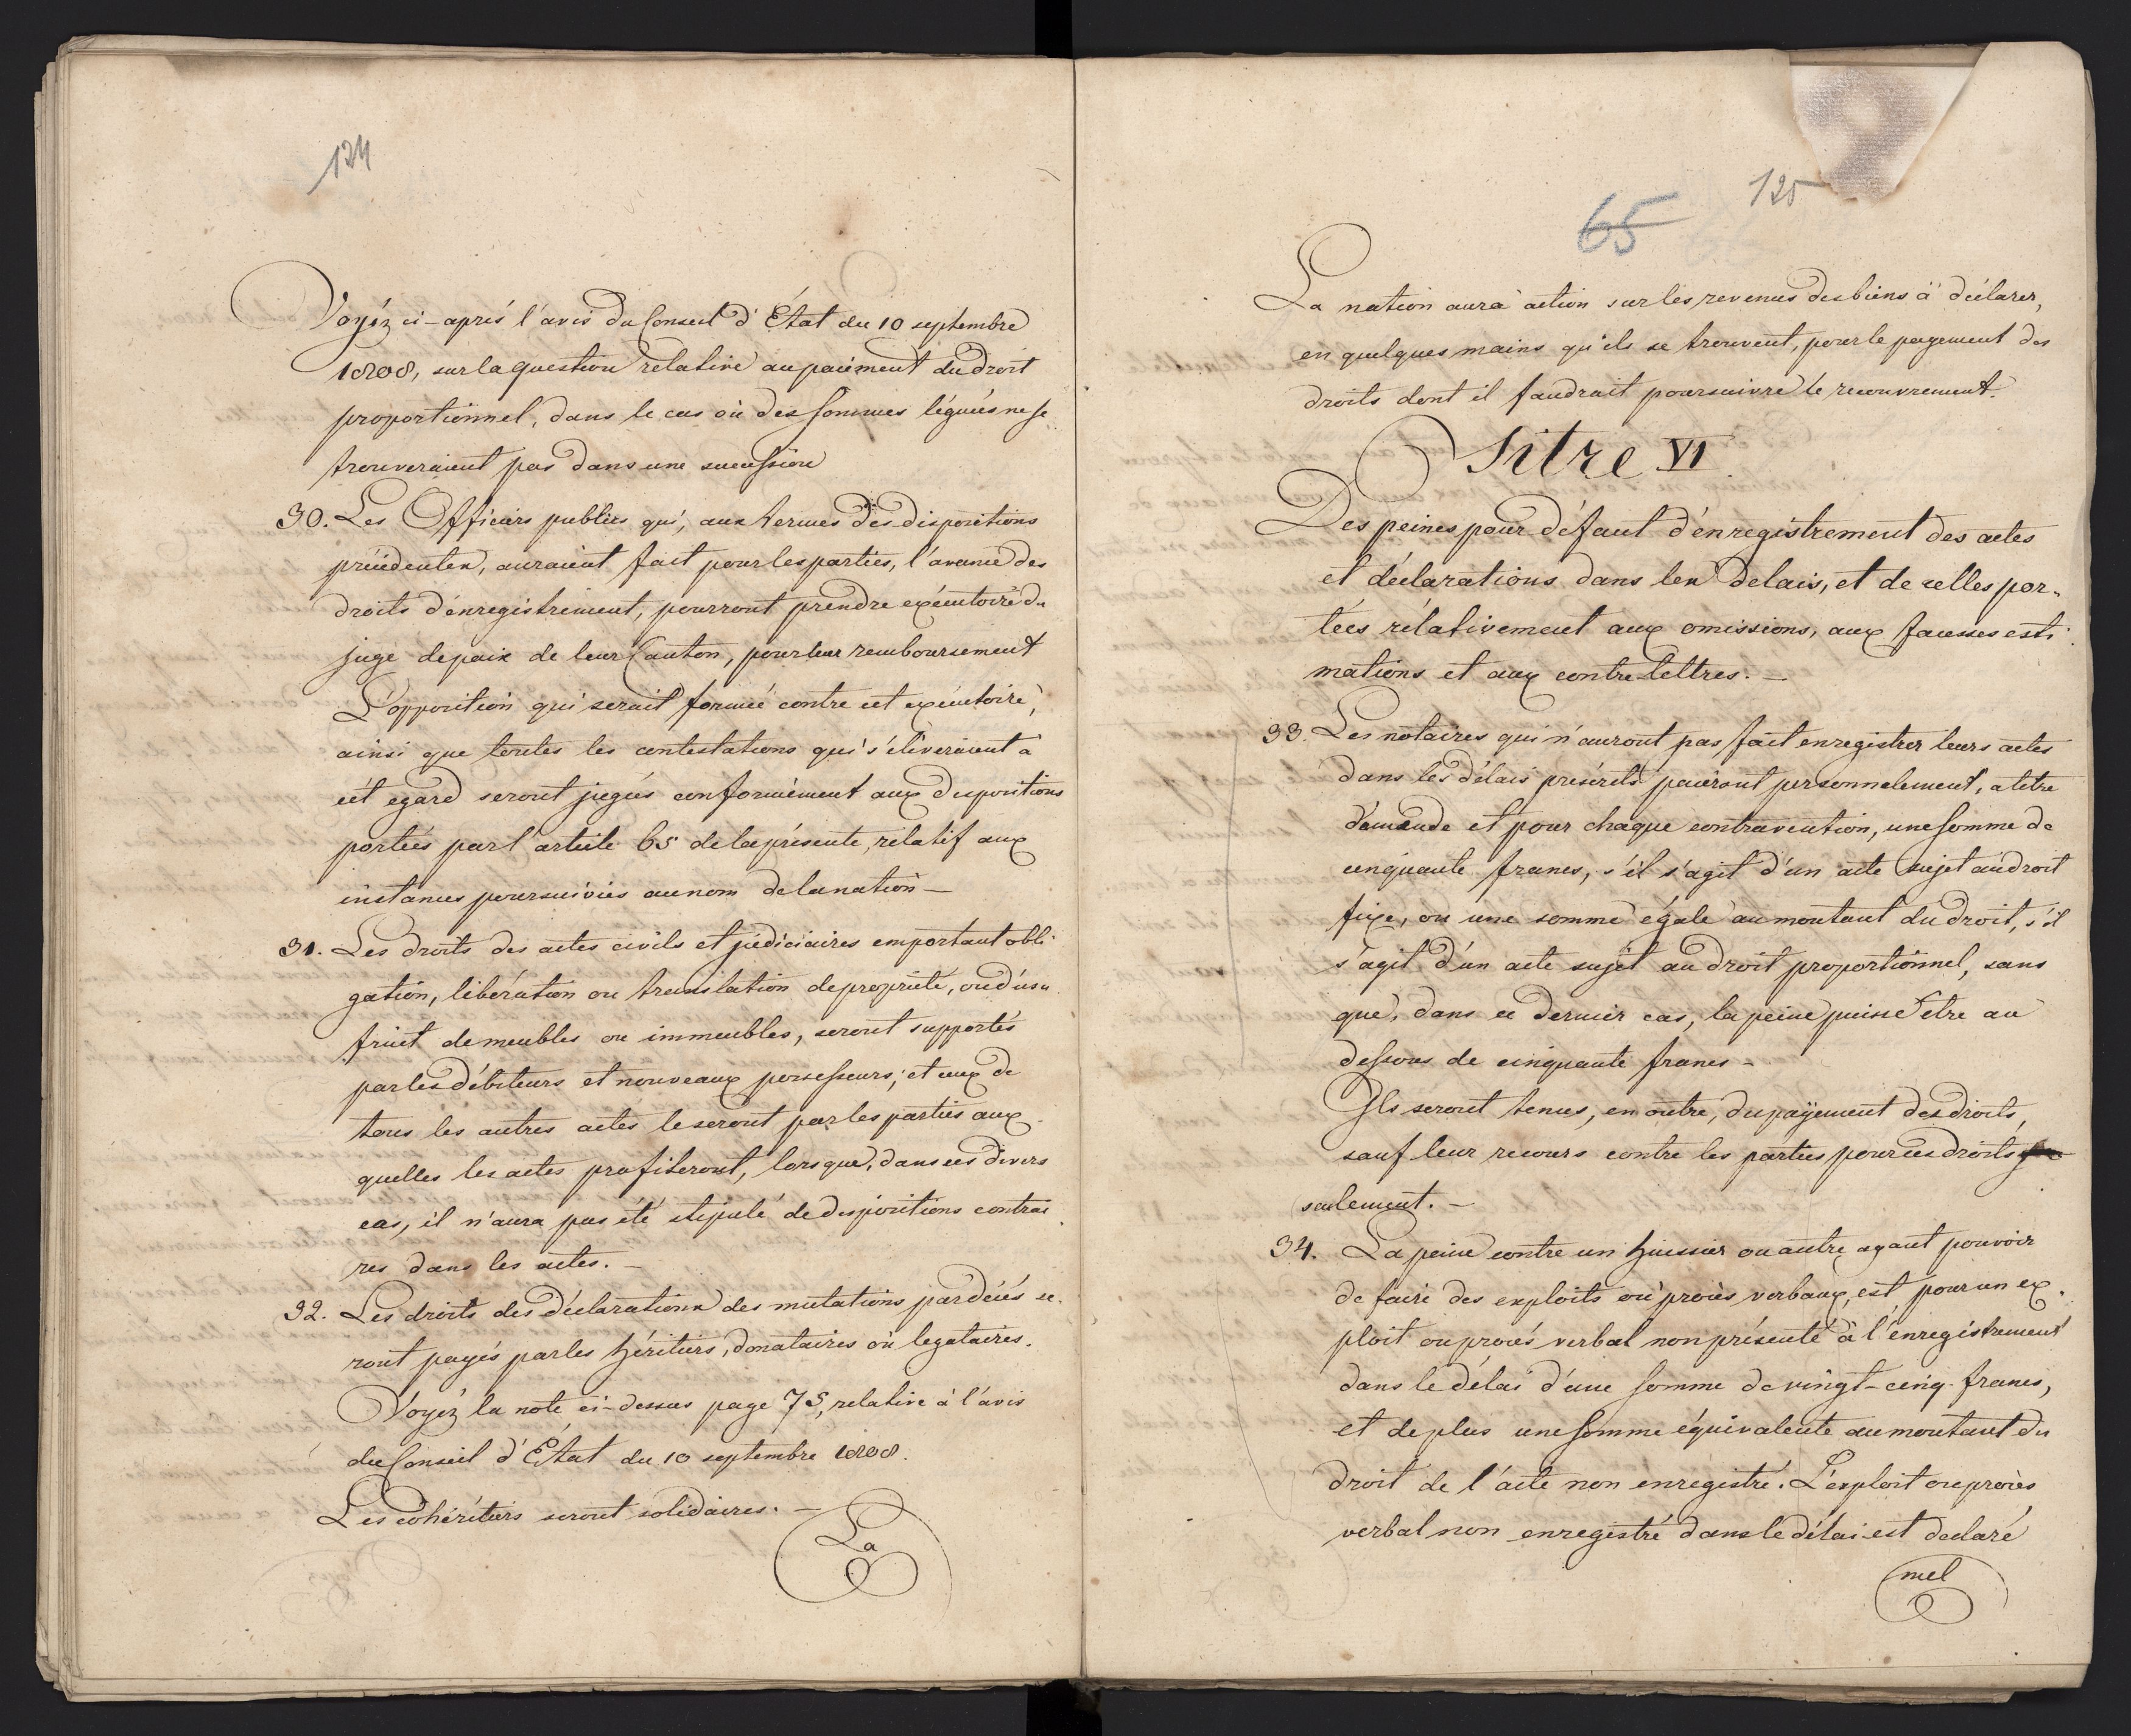 124
Voyéz ci-aprés l'avis du Conseil d'État du 10 septembre
1808, sur la question relative au paiement du droit
proportionnel, dans le cas où des sommes léguées ne se
trouveraient pas dans une succession
30. Les Officiers publics qui, aux termes des dispositions
précédentes, auraient fait pour les parties, l'avance des
droits d'enregistrement, pourront prendre exécutoire du
juge de paix de leur Canton, pour leur remboursement
L'opposition qui serait formée contre cet exécutoire,
ainsi que toutes les contestations qui s'éleveraient à
cét egard seront jugées conformément aux dispositions
portées par l'article 65 de la présente, rélatif aux
instances poursuivies au nom de la nation —
31. Les droits des actes civils et judiciaires emportant obli-
gation, libération ou translation de propriété, ou d'usu
fruit de meubles ou immeubles, seront supportés
par les débiteurs et nouveaux possesseurs; et ceux de
tous les autres actes le seront par les parties aux
quelles les actes profiteront, lorsque, dans ces divers
cas, il n'aura pas été stipulé de dispositions contrai
res dans les actes. —
32. Les droits des déclarations des mutations par décés se-
ront payés par les héritiers, donataires ou legataires.
Voyéz la note ci-dessus page 75, relative à l'avis
du Conseil d'État du 10 septembre 1808.
Les cohéritiers seront solidaires. —
La
125
65
La nation aura action sur les revenus des biens à déclarer,
en quelques mains qu'ils se trouvent, pour le payement des
droits dont il faudrait poursuivre le recouvrement.
Titre VI
Des peines pour défaut d'enregistrement des actes
et déclarations dans les delais, et de celles por-
tées rélativement aux omissions, aux fausses esti
mations et aux contre-lettres. —
33. Les notaires qui n'auront pas fait enregistrer leurs actes
dans les délais préscrits paieront personnelement, a titre
d'amende et pour chaque contravention, une somme de
cinquante francs, s'il s'agit d'un acte sujet au droit
fixe, ou une somme égale au montant du droit, s'il
s'agit d'un acte sujet au droit proportionnel, sans
que, dans ce dernier cas, la peine puisse être au
dessous de cinquante francs —
Ils seront tenus, en outre, du payement des droits,
sauf leur recours contre les parties pour ces droits
seulement. —
34. La peine contre un huissier ou autre ayant pouvoir
de faire des exploits ou procès verbaux, est pour un ex-
ploit ou procés verbal non présenté à l'énregistrement
dans le délai d'une somme de vingt-cinq francs,
et de plus une somme équivalente au montant du
droit de l'acte non enregistré. L'exploit ou procès
verbal non enregistré dans le délai est declaré
nul